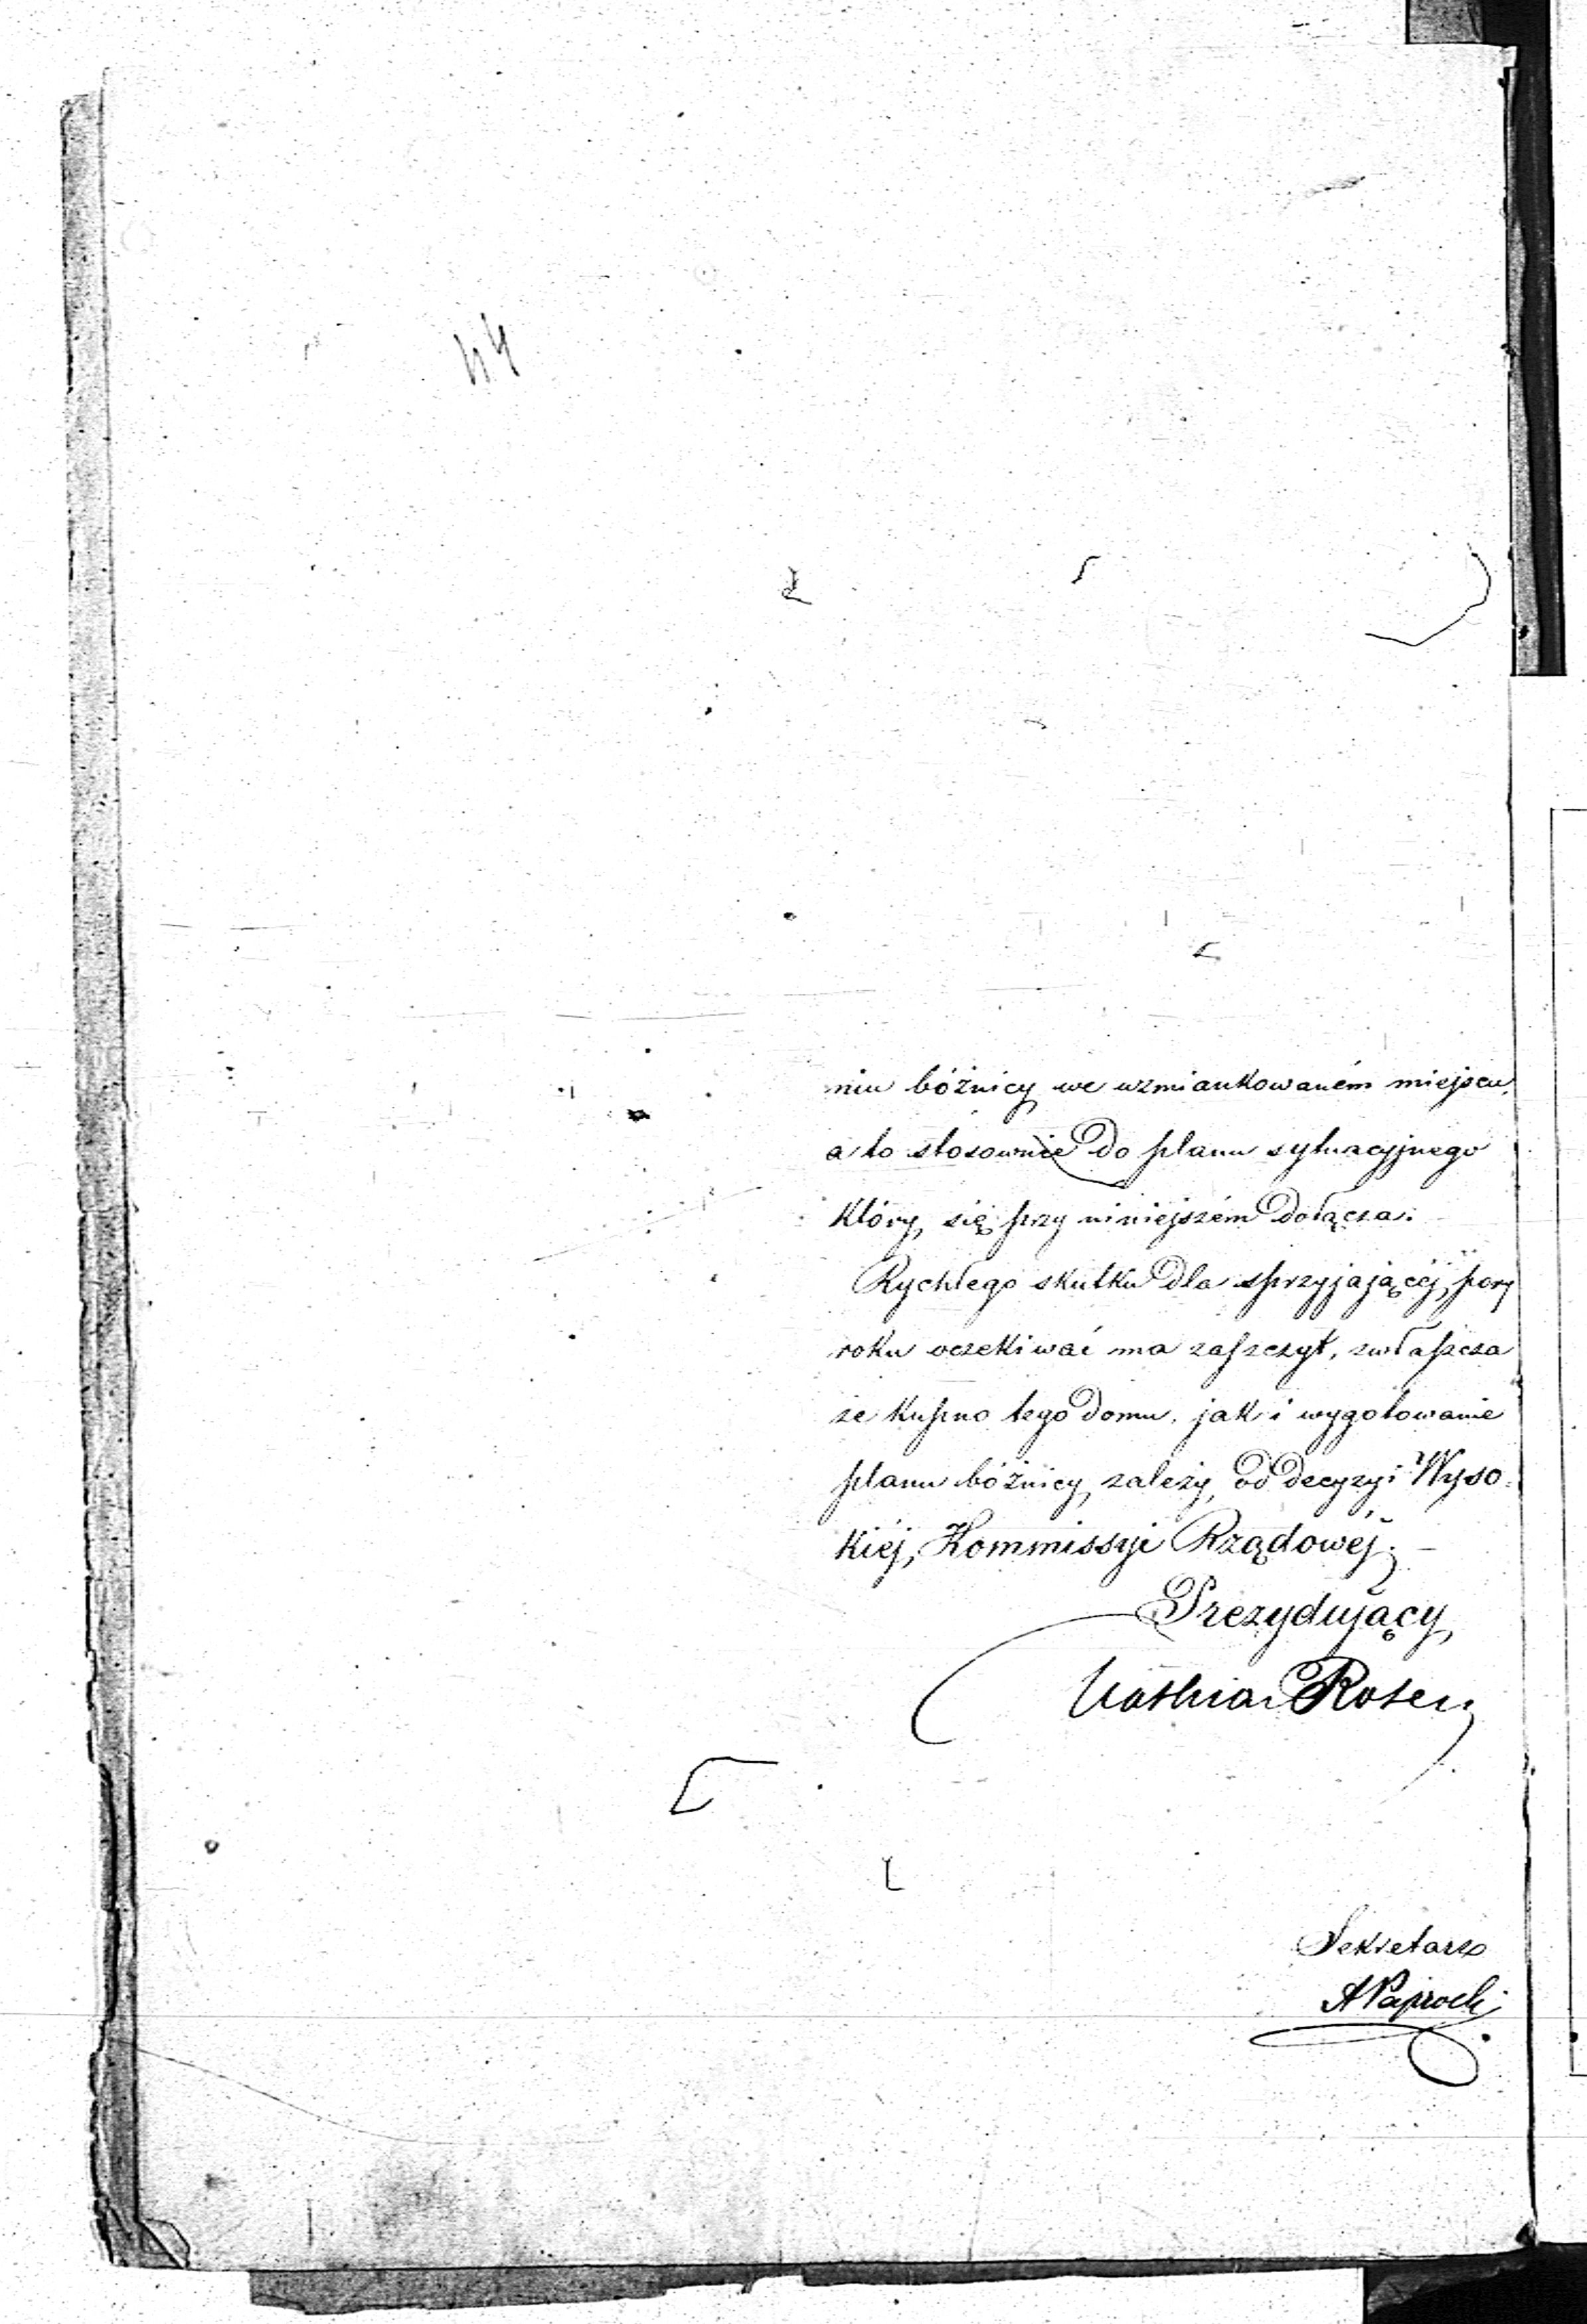 44
niu bóżnicy we wzmiankowaném miejscu,
a to stosownie do planu sytuacyjnego
który się przy niniejszém dołącza.
Rychłego skutku dla sprzyjającéj pory
roku oczekiwać ma zaszczyt, zwłaszcza
że kupno tego domu, jak i wygotowanie
planu bóżnicy zależy od decyzyi Wyso-
kiéj Kommissyi Rządowéj. —
Prezydujący
Mathias Rosen
Sekretarz
A Paprocki